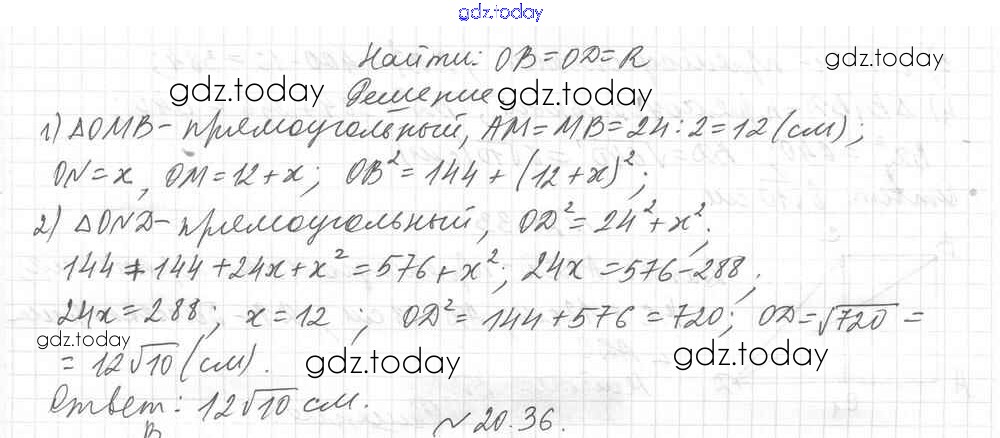 gdz.today
Найти: OB=OD=R
gdz.today Решение gdz.today gdz.today
1) △OMB - прямоугольный, AM=MB=24:2=12 (см);
ON=x, OM=12+x; OB²=144+(12+x)²;
2) △OND - прямоугольный, OD²=24²+x²;
144+144+24x+x²=576+x²; 24x=576-288;
24x=288; x=12; OD²=144+576=720; OD=√720=
gdz.today
=12√10 (см). gdz.today gdz.today
Ответ: 12√10 см.
№20.36.
В